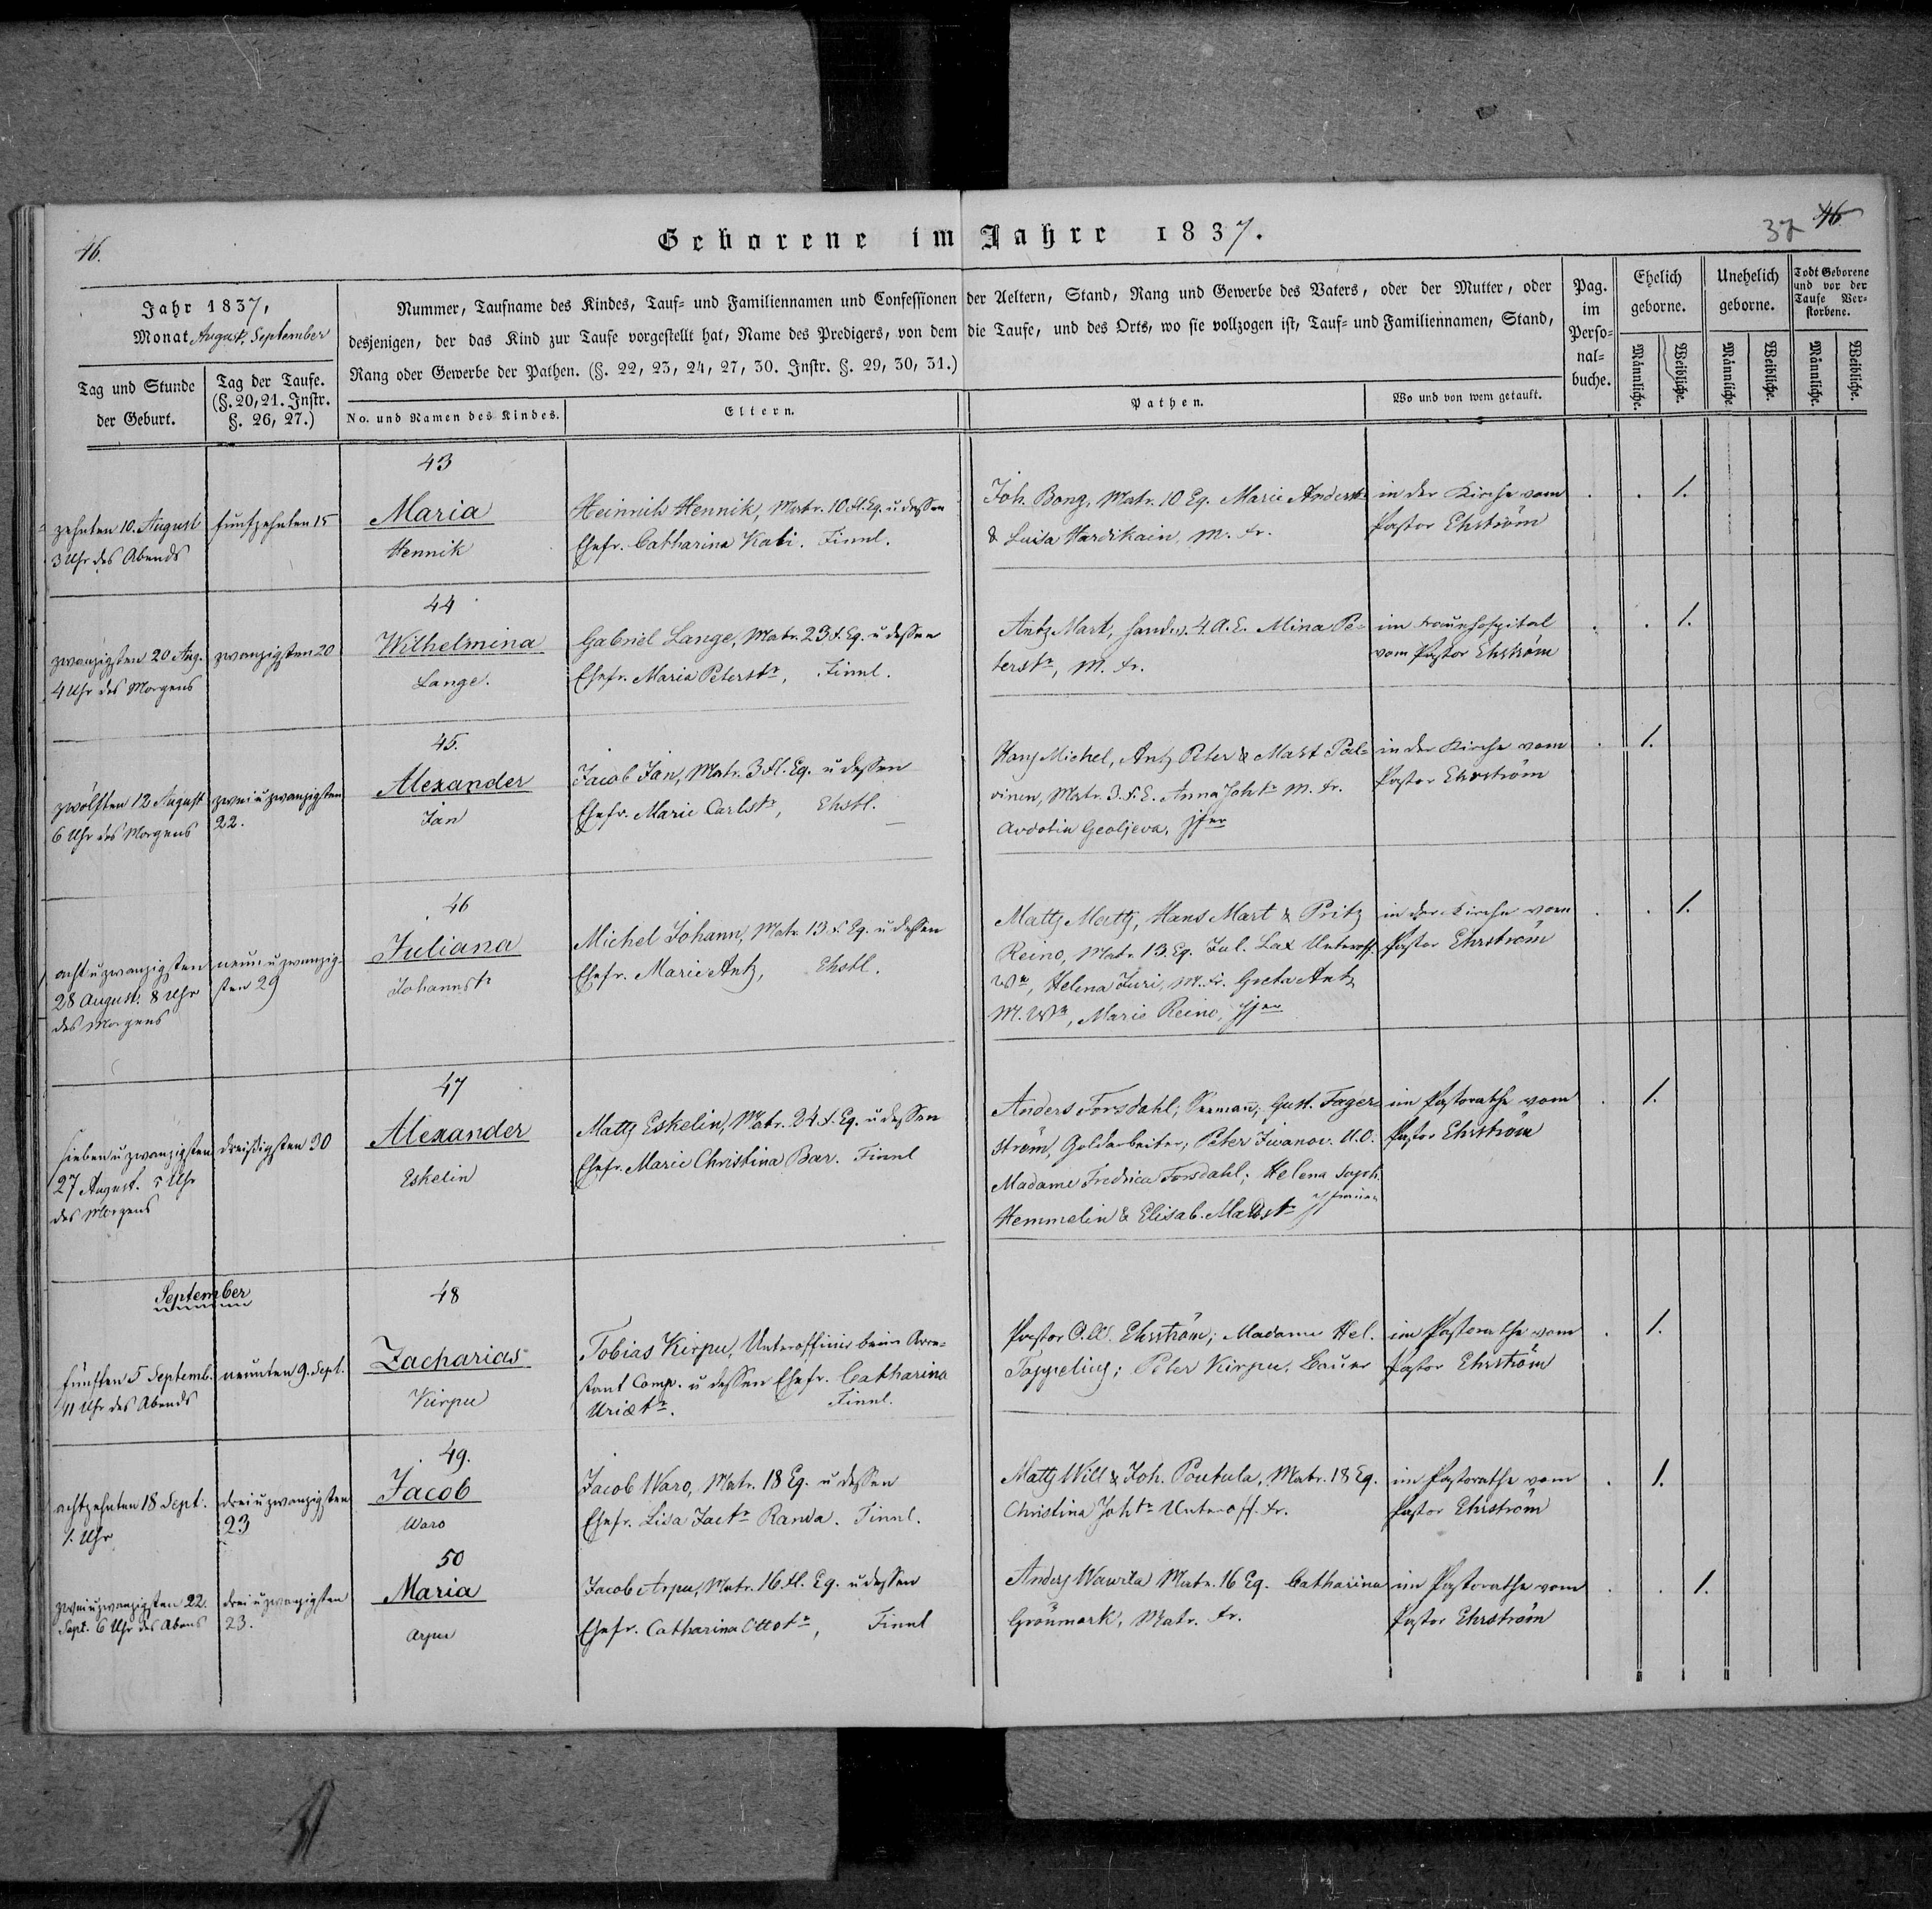 46.
Geborene im Jahre 1837.
37 46
Jahr 1837,
Monat August, September
Tag und Stunde
der Geburt.
Tag der Taufe.
(§. 20, 21. Instr.
§. 26, 27.)
Nummer, Taufname des Kindes, Tauf- und Familiennamen und Confessionen der Aeltern, Stand, Rang und Gewerbe des Vaters, oder der Mutter, oder
desjenigen, der das Kind zur Taufe vorgestellt hat, Name des Predigers, von dem die Taufe, und des Orts, wo sie vollzogen ist, Tauf- und Familiennamen, Stand,
Rang oder Gewerbe der Pathen. (§. 22, 23, 24, 27, 30. Instr. §. 29, 30, 31.)
No. und Namen des Kindes.
Eltern.
Pathen.
Wo und von wem getauft.
Pag.
im
Perso-
nal-
buche.
Ehelich
geborne.
Männliche.
Weibliche.
Unehelich
geborne.
Männliche.
Weibliche.
Todt Geborene
und vor der
Taufe Ver-
storbene.
Männliche.
Weibliche.
zehnten 10. August
3 Uhr des Abends
fünfzehnten 15
43
Maria
Hennik
Heinrich Hennik, Matr. 10 Fl. Eq. u dessen
Ehefr. Catharina Kabi. Finnl.
Joh. Bong, Matr. 10 Eq. Marie Anderst.
& Luisa Hardikain, M. Fr.
in der Kirche vom
Pastor Ehrström
1.
zwanzigsten 20 Aug.
4 Uhr des Morgens
zwanzigsten 20
44
Wilhelmina
Lange.
Gabriel Lange, Matr. 23 F. Eq. u dessen
Ehefr. Maria Peterstr, Finnl.
Antz Mart, 4. A. E. Mina Pe-
terstr, M. Fr.
im
vom Pastor Ehrström
1.
zwölften 12 August
6 Uhr des Morgens
zwei u zwanzigsten
22.
45.
Alexander
Jan
Jacob Jan, Matr. 3 Fl. Eq. u dessen
Ehefr. Marie Carlstr, Ehstl.
Hans Michel, Antz Peter & Mart Pal-
vinen, Matr. 3. F. E. Anna Johtr M. Fr.
Avdotia Geoljeva, Jfer
in der Kirche vom
Pastor Ehrström
1.
acht u zwanzigsten
28 August. 8 Uhr
des Morgens
neun u zwanzig-
sten 29
46
Juliana
Johannstr
Michel Johann, Matr. 13 F. Eq. u dessen
Ehefr. Marie Antz, Ehstl.
Matts Matts, Hans Mart & Pritz
Reino, Matr. 13. Eq. Jul. Lax Unteroff.
We, Helena Juri, M. Fr. Greta Antz
M. We, Marie Reino, Jfer
in der Kirche vom
Pastor Ehrström
1.
sieben u zwanzigsten
27 August. 5 Uhr
des Morgens
dreißigsten 30
47
Alexander
Eskelin
Matts Eskelin, Matr. 24 F. Eq. u dessen
Ehefr. Marie Christina Bar. Finnl
Anders Forsdahl; Seemann; Gust. Fager-
ström, Goldarbeiter; Peter Iwanow. U.O.
Madame Fredrica Forsdahl; Helena Soph.
Hemmelin & Elisab. Madstr
im Pastorathe vom
Pastor Ehrström
1.
September
fünften 5 Septemb.
11 Uhr des Abends
neunten 9. Sept.
48
Zacharias
Kirpu
Tobias Kirpu, Unteroffizier beim Arre-
stant Comp. u dessen Ehefr. Catharina
Uriætr. Finnl.
Pastor C. W. Ehrström; Madame Hel.
Tappelius; Peter Kirpu, Bauer
im Pastorathe vom
Pastor Ehrström
1.
achtzehnten 18 Sept.
1. Uhr
drei u zwanzigsten
23
49.
Jacob
Waro
Jacob Waro, Matr. 18 Eq. u dessen
Ehefr. Lisa Jactr Randa. Finnl.
Matts Will & Joh. Poutula, Matr. 18 Eq.
Christina Johtr Unteroff. Fr.
im Pastorathe vom
Pastor Ehrström
1.
zwei u zwanzigsten 22.
Sept. 6 Uhr des Abens
drei u zwanzigsten
23.
50
Maria
Arpu
Jacob Arpu, Matr. 16 Fl. Eq. u dessen
Ehefr. Catharina Ottotr, Finnl
Anders Wawila Matr. 16 Eq. Catharina
Grönmark, Matr. Fr.
im Pastorathe vom
Pastor Ehrström
1.